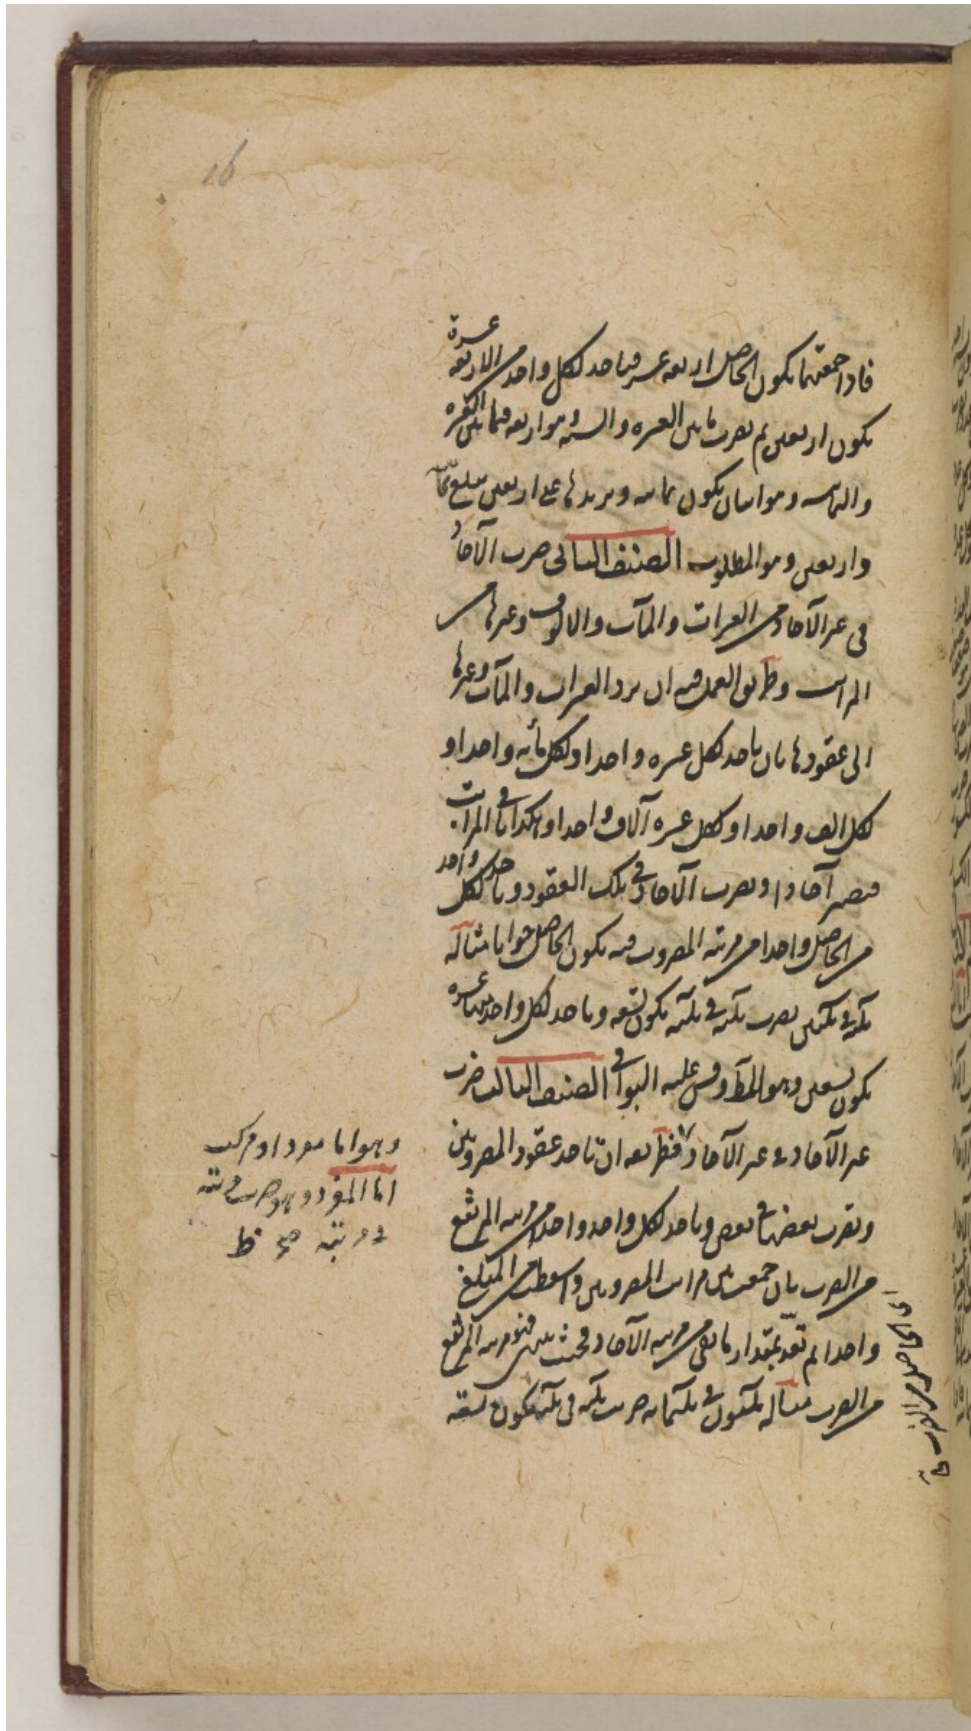 16
فاذا جمعتهما يكون الحاصل اربعة عشر فتاخذ لكل واحد من الاربعة عشرة
يكون اربعين ثم تضرب ما بين العشرة والستة وهو اربعة فيما بين العشرة
والثمانية وهو اثنان يكون ثمانية وتزيدها على اربعين يبلغ ثمانية
واربعين وهو المطلوب الصنف الثاني ضرب الآحاد
في غير الآحاد من العشرات والمآت والالوف وغيرها من
المراتب وطريق العمل فيه ان يرد العشرات والمآت وغيرها
الى عقودها بان تاخذ لكل عشرة واحدا ولكل مائة واحدا و
لكل الف واحدا ولكل عشرة آلاف واحدا وهكذا في المراتب
فتصير آحادا وتضرب الآحاد في تلك العقود وتاخذ لكل واحد
من الحاصل واحدا من مرتبة المضروب فيه يكون الحاصل جوابا مثاله
ثلثة في ثلثين تضرب ثلثة في ثلثة يكون تسعة وتاخذ لكل واحد منها عشرة
يكون تسعين وهو المط وقس عليه البواقي الصنف الثالث ضرب
غير الآحاد في غير الآحاد فطريقه ان تاخذ عقود المضروبين
وتضرب بعضها في بعض وتاخذ لكل واحد واحدا من مرتبة المرتفع
من الضرب بان جمعت بين مراتب المضروبين واسقطت من المبلغ
واحدا ثم تعد بمقدار ما بقى من مرتبة الآحاد فحيث ينتهى فهو مرتبة المرتفع
من الضرب مثاله ثلثون في ثلثمائة ضربت ثلثة في ثلثة يكون تسعة
وهو اما مفرد او مركب
اما المفرد وهو ضرب مرتبة
في مرتبة صح ظ
اى الحاصل من الضرب